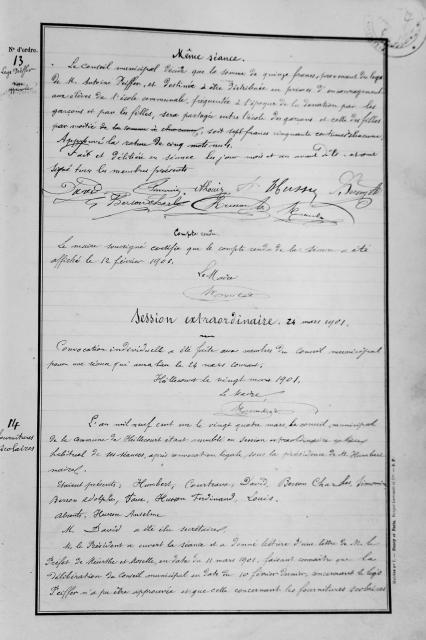 N° d'ordre.
13
Legs Peiffer
non
approuvée
Même séance.
Le Conseil municipal décide que la somme de quinze francs, provenant du legs
de M. Antoine Peiffer, et destinée à être distribuée en primes d'encouragement
aux élèves de l'école communale, fréquentée à l'époque de la donation par les
garçons et par les filles, sera partagée entre l'école de garçons et celle des filles
par moitié de la somme à chacune, soit sept francs cinquante centimes chacune,
Approuvé la rature de cinq mots nuls.
Fait et délibéré en séance les jour, mois et an avant dits et ont
signé tous les membres présents.
David
Compte rendu
Le maire soussigné certifie que le compte rendu de la séance a été
affiché le 12 février 1901.
Le Maire
Session extraordinaire. 24 mars 1901.
Convocation individuelle a été faite aux membres du Conseil municipal
pour une séance qui aura lieu le 24 mars courant.
le vingt mars 1901.
Le Maire
14
Fournitures
scolaires
L'an mil neuf cent un le vingt quatre mars le conseil municipal
de la commune de étant assemblé en session extraordinaire au lieu
habituel de ses séances, après convocation légale, sous la présidence de M. Humbert
maire.
Etaient présents: Humbert, Courteaux, David, Berson Charles
Berson Adolphe, Husson Ferdinand, Louis.
Absents, Husson Anselme
M. David a été élu secrétaire.
M. le Président a ouvert la séance et a donné lecture d'une lettre de M. le
Préfet de Meurthe et Moselle en date du 11 mars 1901, faisant connaître que la
délibération du Conseil municipal en date du 10 février dernier, concernant le legs
Peiffer n'a pu être approuvée et que celle concernant les fournitures scolaires